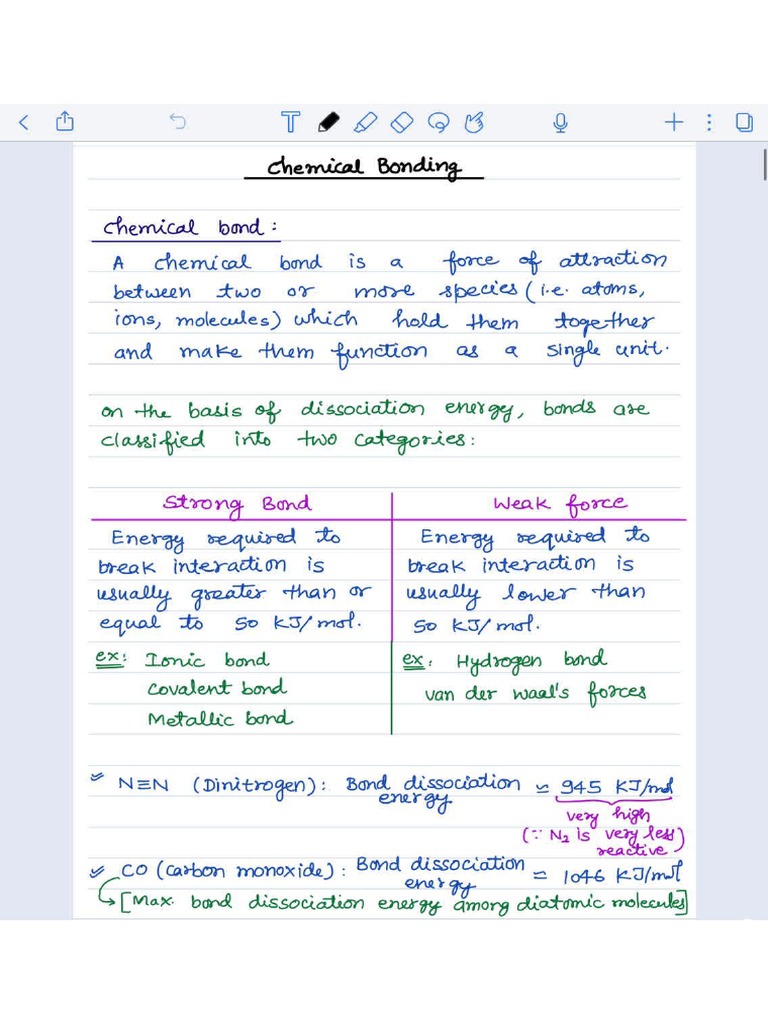 Chemical Bonding
Chemical bond:
A chemical bond is a force of attraction
between two or more species (i.e. atoms,
ions, molecules) which hold them together
and make them function as a single unit.
on the basis of dissociation energy, bonds are
classified into two categories:
Strong Bond
Energy required to
break interaction is
usually greater than or
equal to 50 KJ/mol.
ex: Ionic bond
Covalent bond
Metallic bond
Weak force
Energy required to
break interaction is
usually lower than
50 KJ/mol.
ex: Hydrogen bond
van der waal's forces
N≡N (Dinitrogen): Bond dissociation energy ≃ 945 KJ/mol
very high
(∵ N₂ is very less reactive)
CO (carbon monoxide): Bond dissociation energy ≃ 1046 KJ/mol
[Max. bond dissociation energy among diatomic molecules]